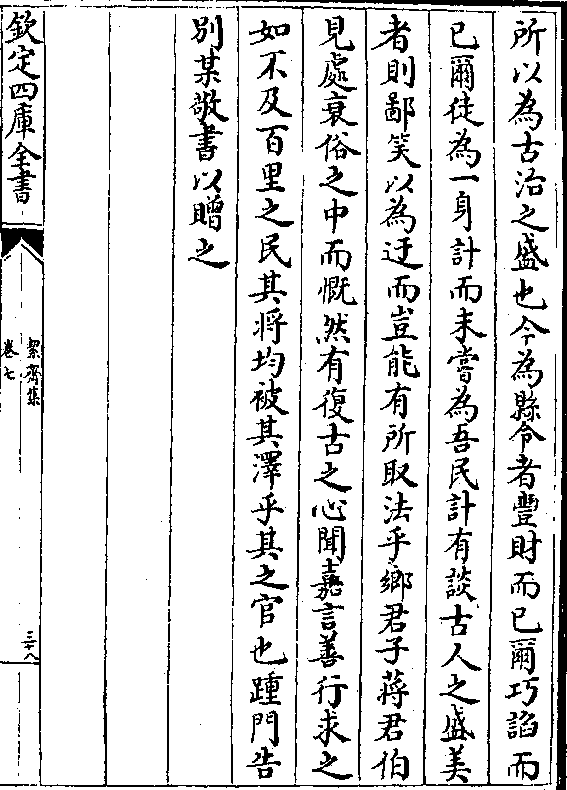 所以為古治之盛也今為縣令者豐財而已爾巧諂而
已爾徒為一身計而未嘗為吾民計有談古人之盛美
者則鄙笑以為迂而豈能有所取法乎鄉君子蔣君伯
見處衰俗之中而慨然有復古之心聞嘉言善行求之
如不及百里之民其將均被其澤乎其之官也踵門告
别某敬書以贈之
欽定四庫全書
絜齊集
卷七
三十八